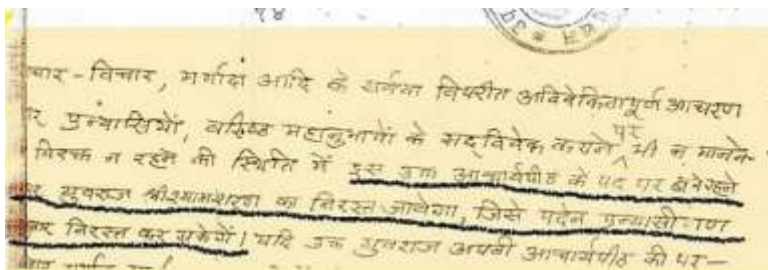 १४
चार - विचार, मर्यादा आदि के सर्वथा विपरीत अविवेकितापूर्ण आचरण
र प्रन्यासियों, वरिष्ठ महानुभावों के सद्विवेक कराने पर भी न मानने-
विरक्त न रहने की स्थिति में इस उक्त आचार्यपीठ के पद पर होने रहने
युवराज श्रीश्यामशरण का निरस्त जावेगा, जिसे पदेन प्रन्यासी गण
कर निरस्त कर सकेगें। यदि उक्त युवराज अपनी आचार्यपीठ की पर-